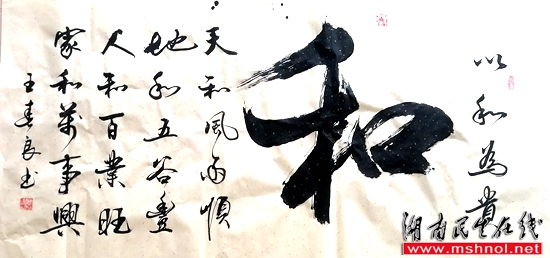 以和為貴
和
天和風雨順
地和五谷豐
人和百業旺
家和萬事興
王春良书
湖南民生在线
www.mshnol.net